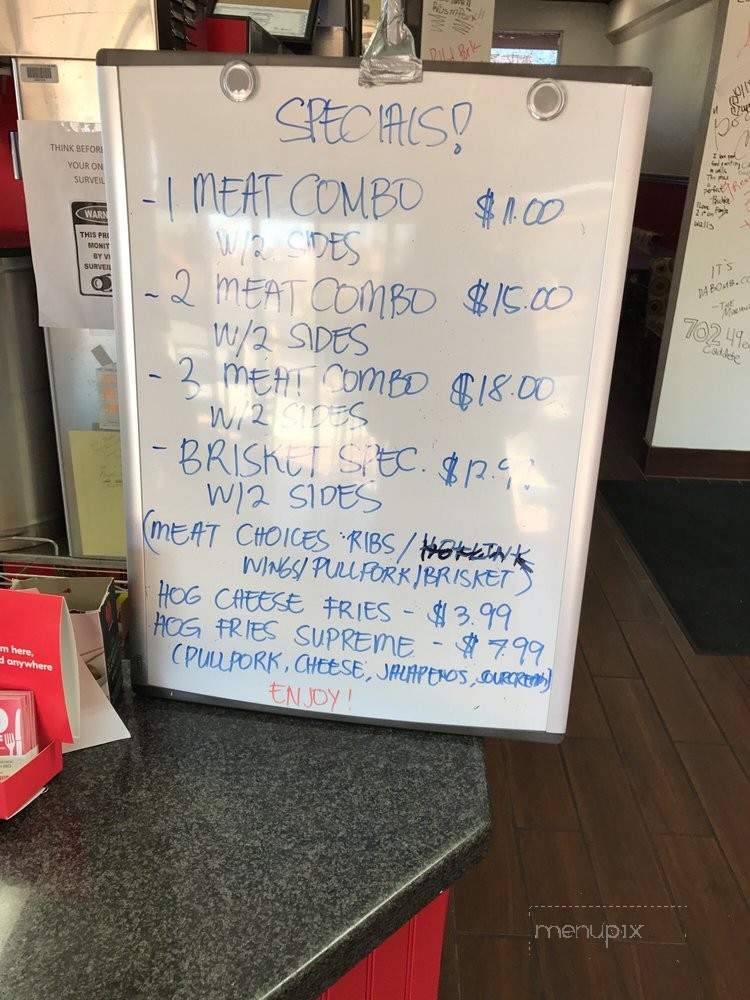 SPECIALS!
- 1 MEAT COMBO $11.00
W/2 SIDES
- 2 MEAT COMBO $15.00
W/2 SIDES
- 3 MEAT COMBO $18.00
W/2 SIDES
- BRISKET SPEC. $12.9
W/2 SIDES
(MEAT CHOICES RIBS/
WINGS/PULLPORK/BRISKET)
HOG CHEESE FRIES - $3.99
HOG FRIES SUPREME - $7.99
(PULLPORK, CHEESE, JALAPENOS, SOURCREAM)
ENJOY!
THINK BEFOR
YOUR ON
SURVEIL
WARN
THIS PR
MONIT
BY VI
SURVEIL
m here,
d anywhere
IT'S
DA BOMB.CO
702 49
menupix